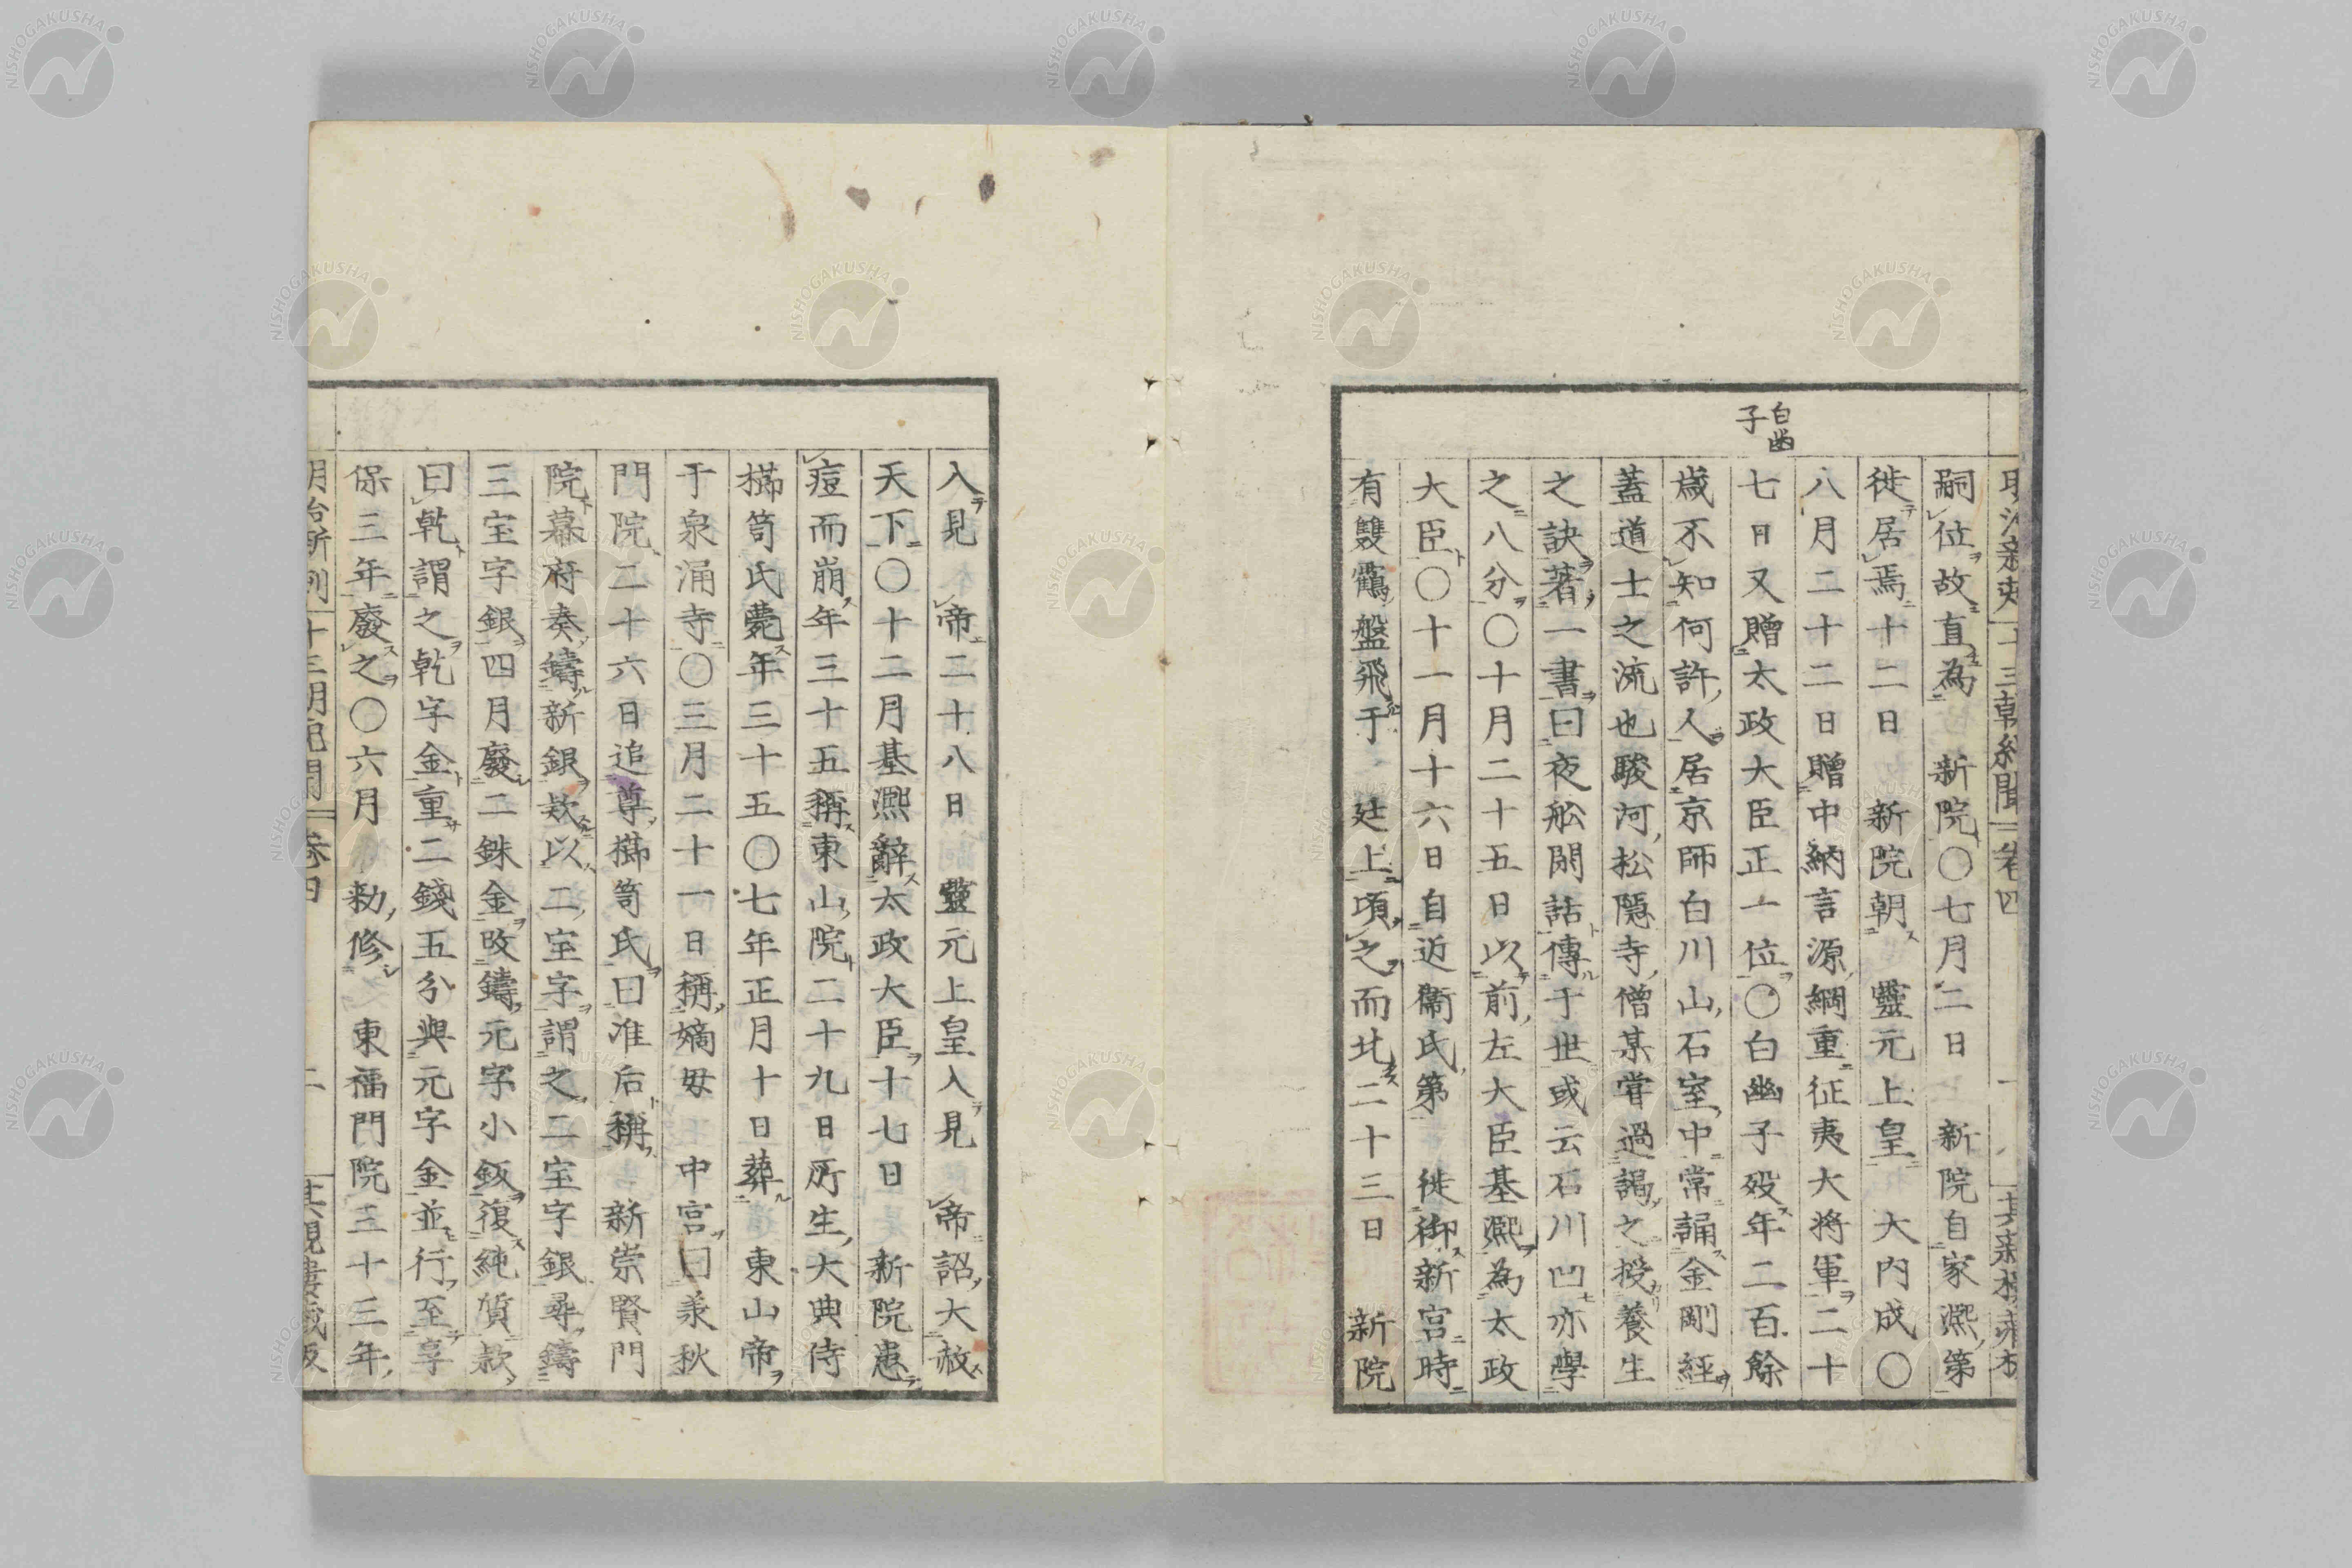 白幽
子
嗣位故直為 新院〇七月二日 新院自家熈第
徙居焉十二日 新院朝 靈元上皇 大内成〇
八月二十二日贈中納言源綱重征夷大将軍二十
七日又贈太政大臣正一位〇白幽子歿年二百餘
歳不知何許人居京師白川山石室中常誦金剛經
蓋道士之流也駿河松隠寺僧某嘗過謁之授養生
之訣著一書曰夜舩閑話傳于世或云石川凹亦學
之八分〇十月二十五日以前左大臣基熈為太政
大臣〇十一月十六日自近衞氏第 徙御新宮時
有雙鶴盤飛于 廷上頃之而北二十三日 新院
入見 帝二十八日 靈元上皇入見 帝詔大赦
天下〇十二月基熈辭太政大臣十七日 新院患
痘而崩年三十五稱東山院二十九日所生大典侍
櫛笥氏薨年三十五〇七年正月十日葬 東山帝
于泉涌寺〇三月二十一日稱嫡母 中宮曰承秋
門院二十六日追尊櫛笥氏曰准后稱 新崇賢門
院幕府奏鑄新銀款以二宝字謂之二宝字銀尋鑄
三宝字銀四月廢二銖金改鑄元字小鈑復純質款
曰乾謂之乾字金重二錢五分與元字金並行至享
保三年廢之〇六月 勅修 東福門院三十三年
明治新刻 十三朝紀聞 巻四 二